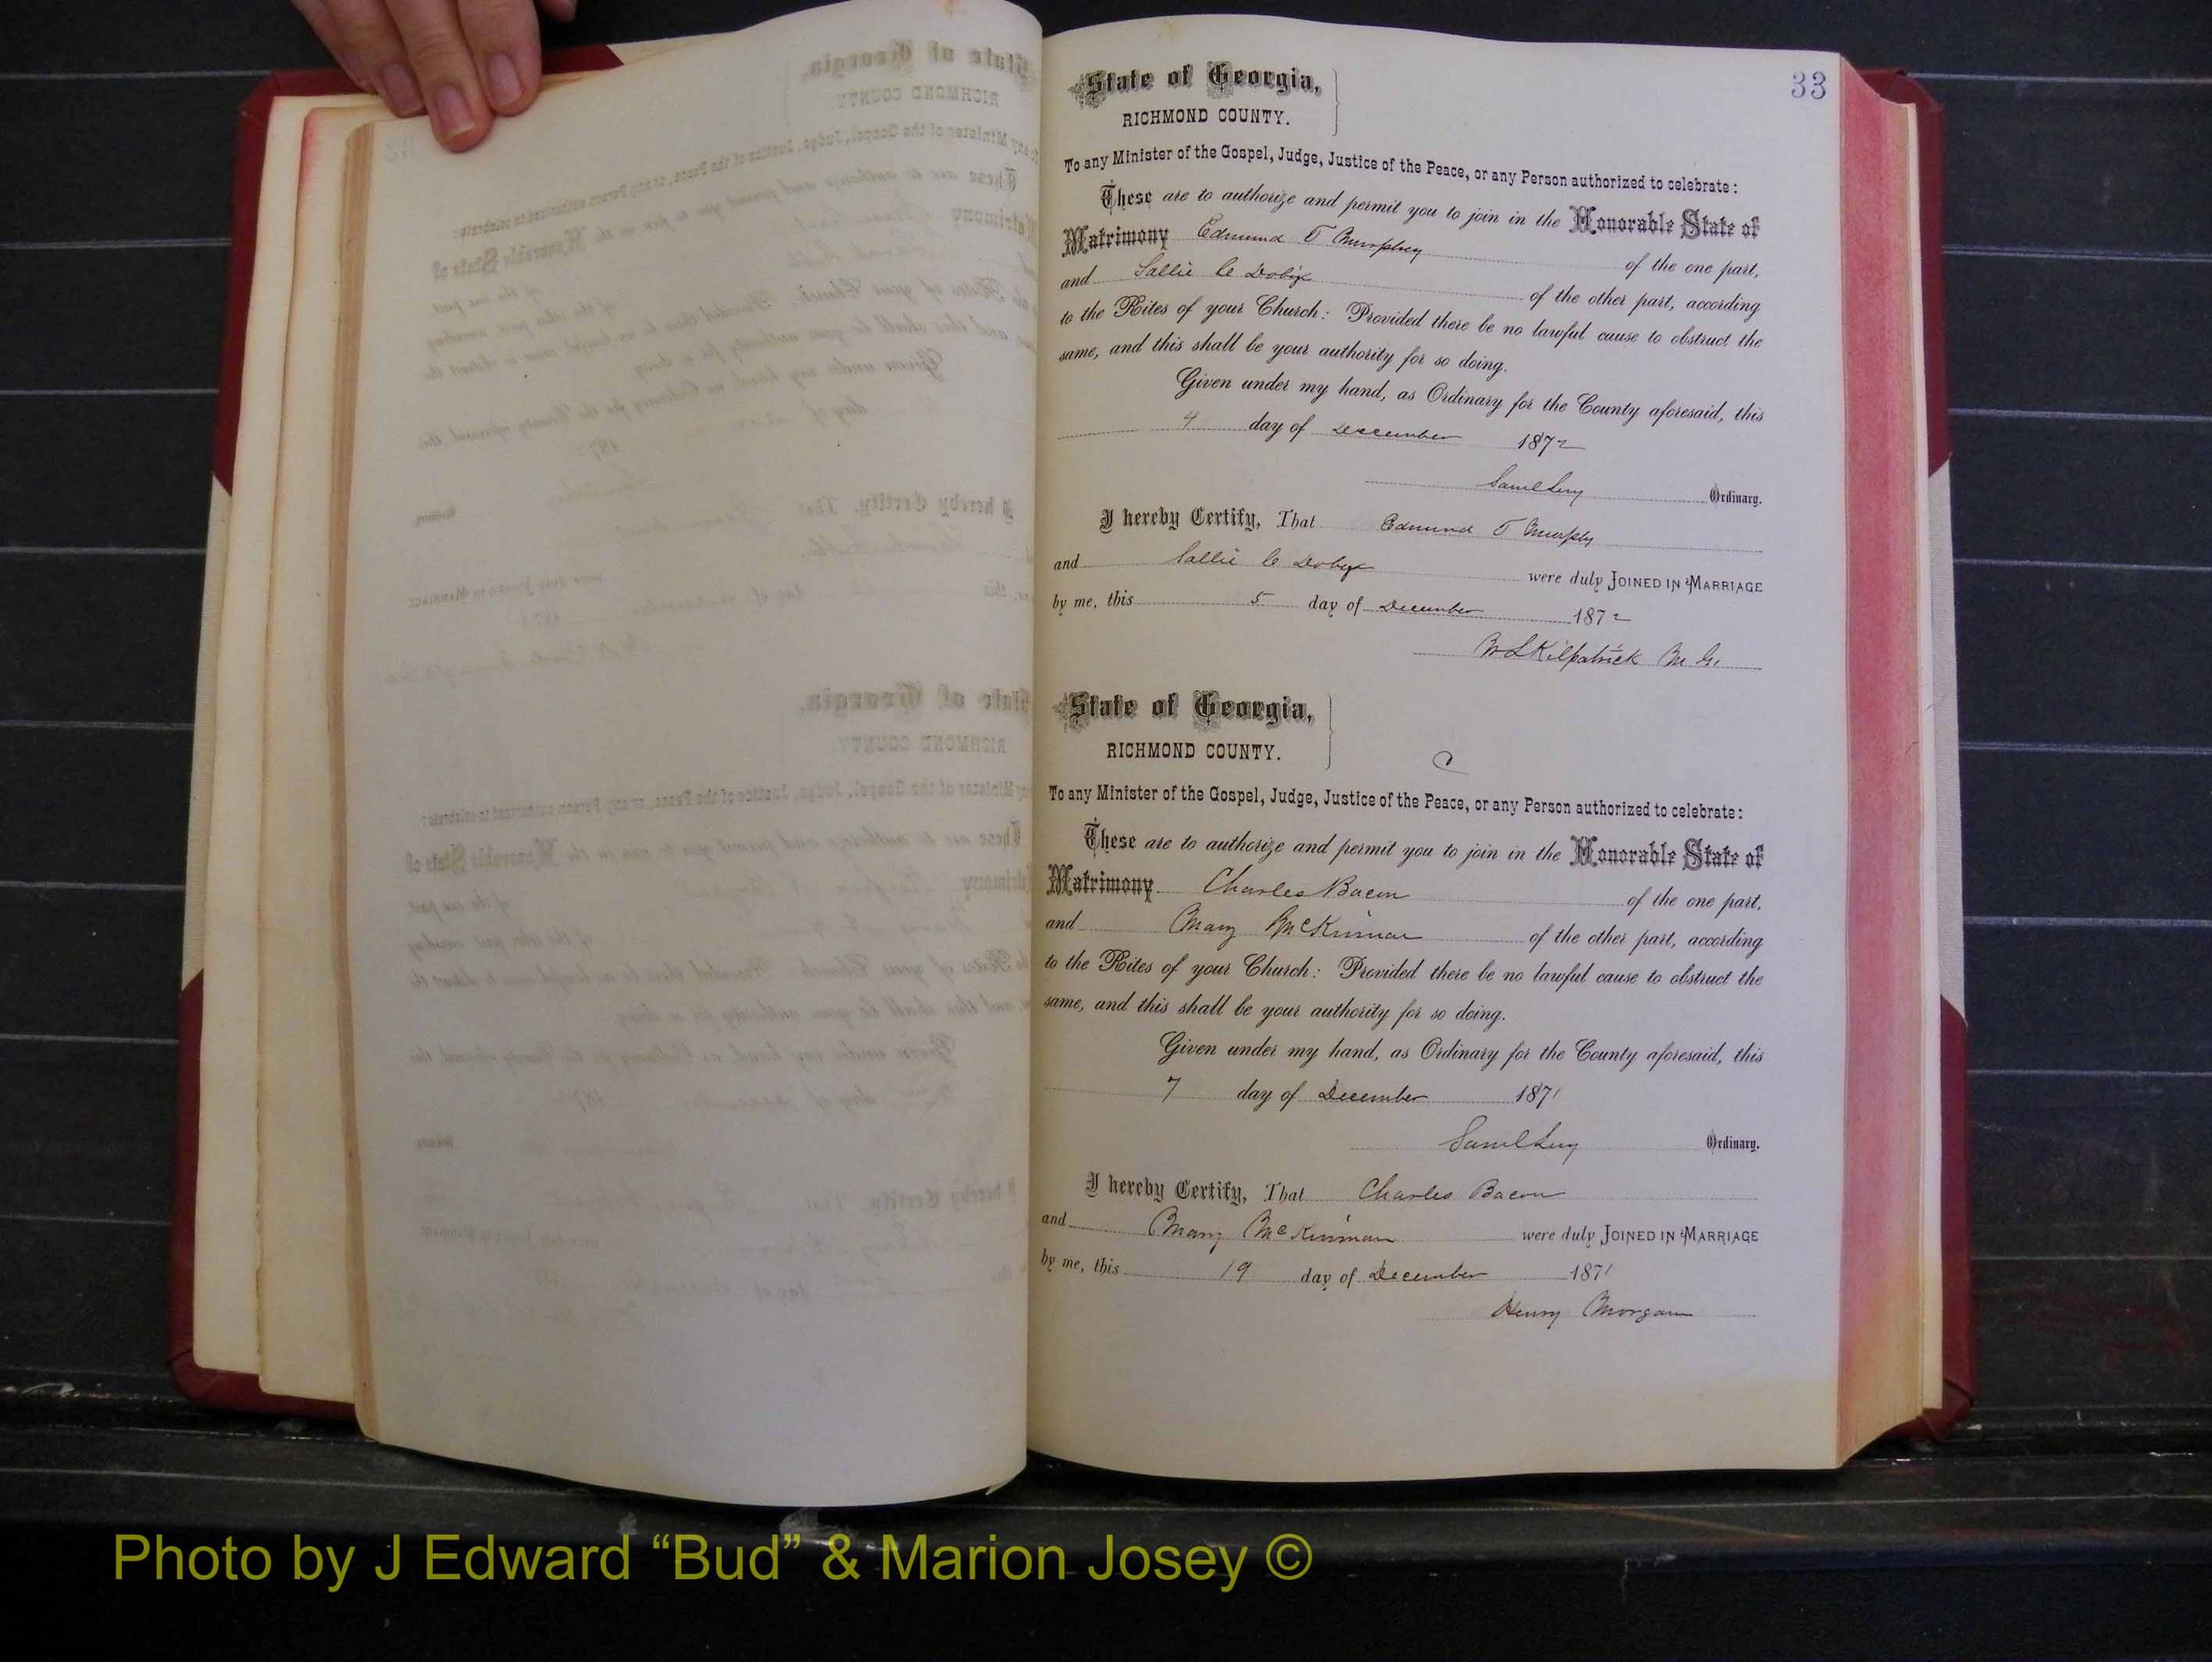 33
State of Georgia,
RICHMOND COUNTY.
To any Minister of the Gospel, Judge, Justice of the Peace, or any Person authorized to celebrate:
These are to authorize and permit you to join in the Honorable State of
Matrimony Edmund T Murphey of the one part,
and Sallie C of the other part, according
to the Rites of your Church: Provided there be no lawful cause to obstruct the
same, and this shall be your authority for so doing.
Given under my hand, as Ordinary for the County aforesaid, this
4 day of December 1872
Saml Levy Ordinary.
I hereby Certify, That Edmund T Murphy
and Sallie C were duly JOINED IN MARRIAGE
by me, this 5 day of December 1872
W L Kilpatrick M. G.
State of Georgia,
RICHMOND COUNTY.
C
To any Minister of the Gospel, Judge, Justice of the Peace, or any Person authorized to celebrate:
These are to authorize and permit you to join in the Honorable State of
Matrimony Charles Bacon of the one part,
and Mary McKinman of the other part, according
to the Rites of your Church: Provided there be no lawful cause to obstruct the
same, and this shall be your authority for so doing.
Given under my hand, as Ordinary for the County aforesaid, this
7 day of December 1871
Saml Levy Ordinary.
I hereby Certify, That Charles Bacon
and Mary McKinman were duly JOINED IN MARRIAGE
by me, this 19 day of December 1871
Henry Morgan
Photo by J Edward “Bud” & Marion Josey ©